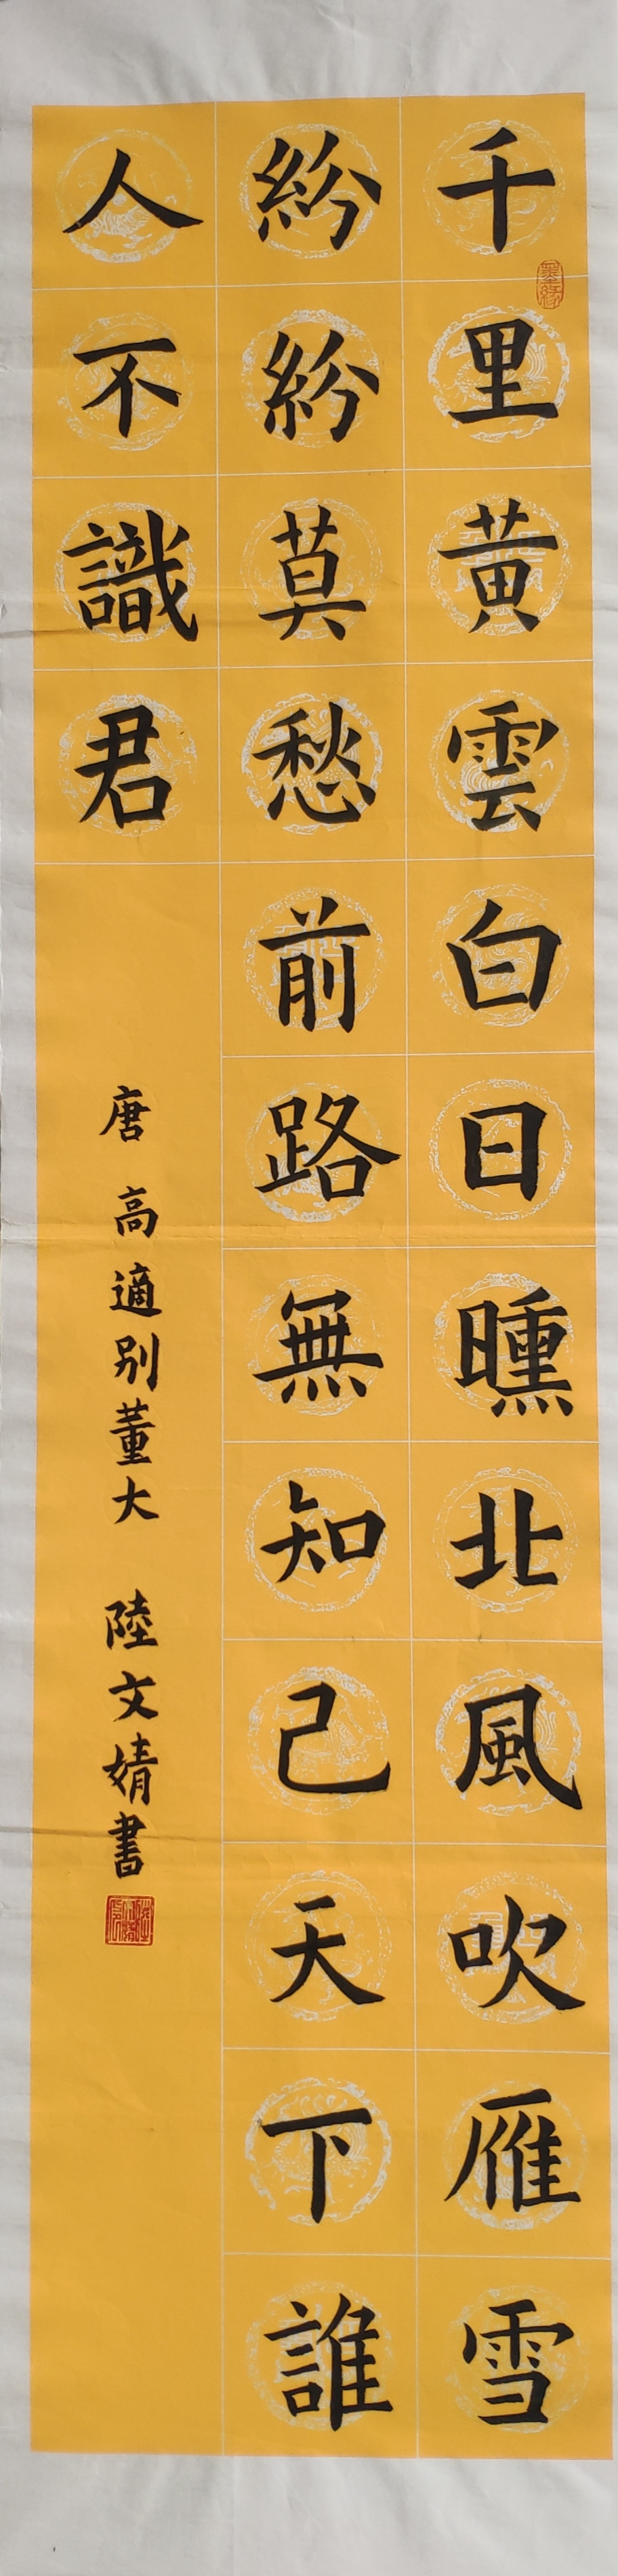 千里黃雲白日曛北風吹雁雪
紛紛莫愁前路無知己天下誰
人不識君
唐 高適別董大 陸文婧書
墨緣